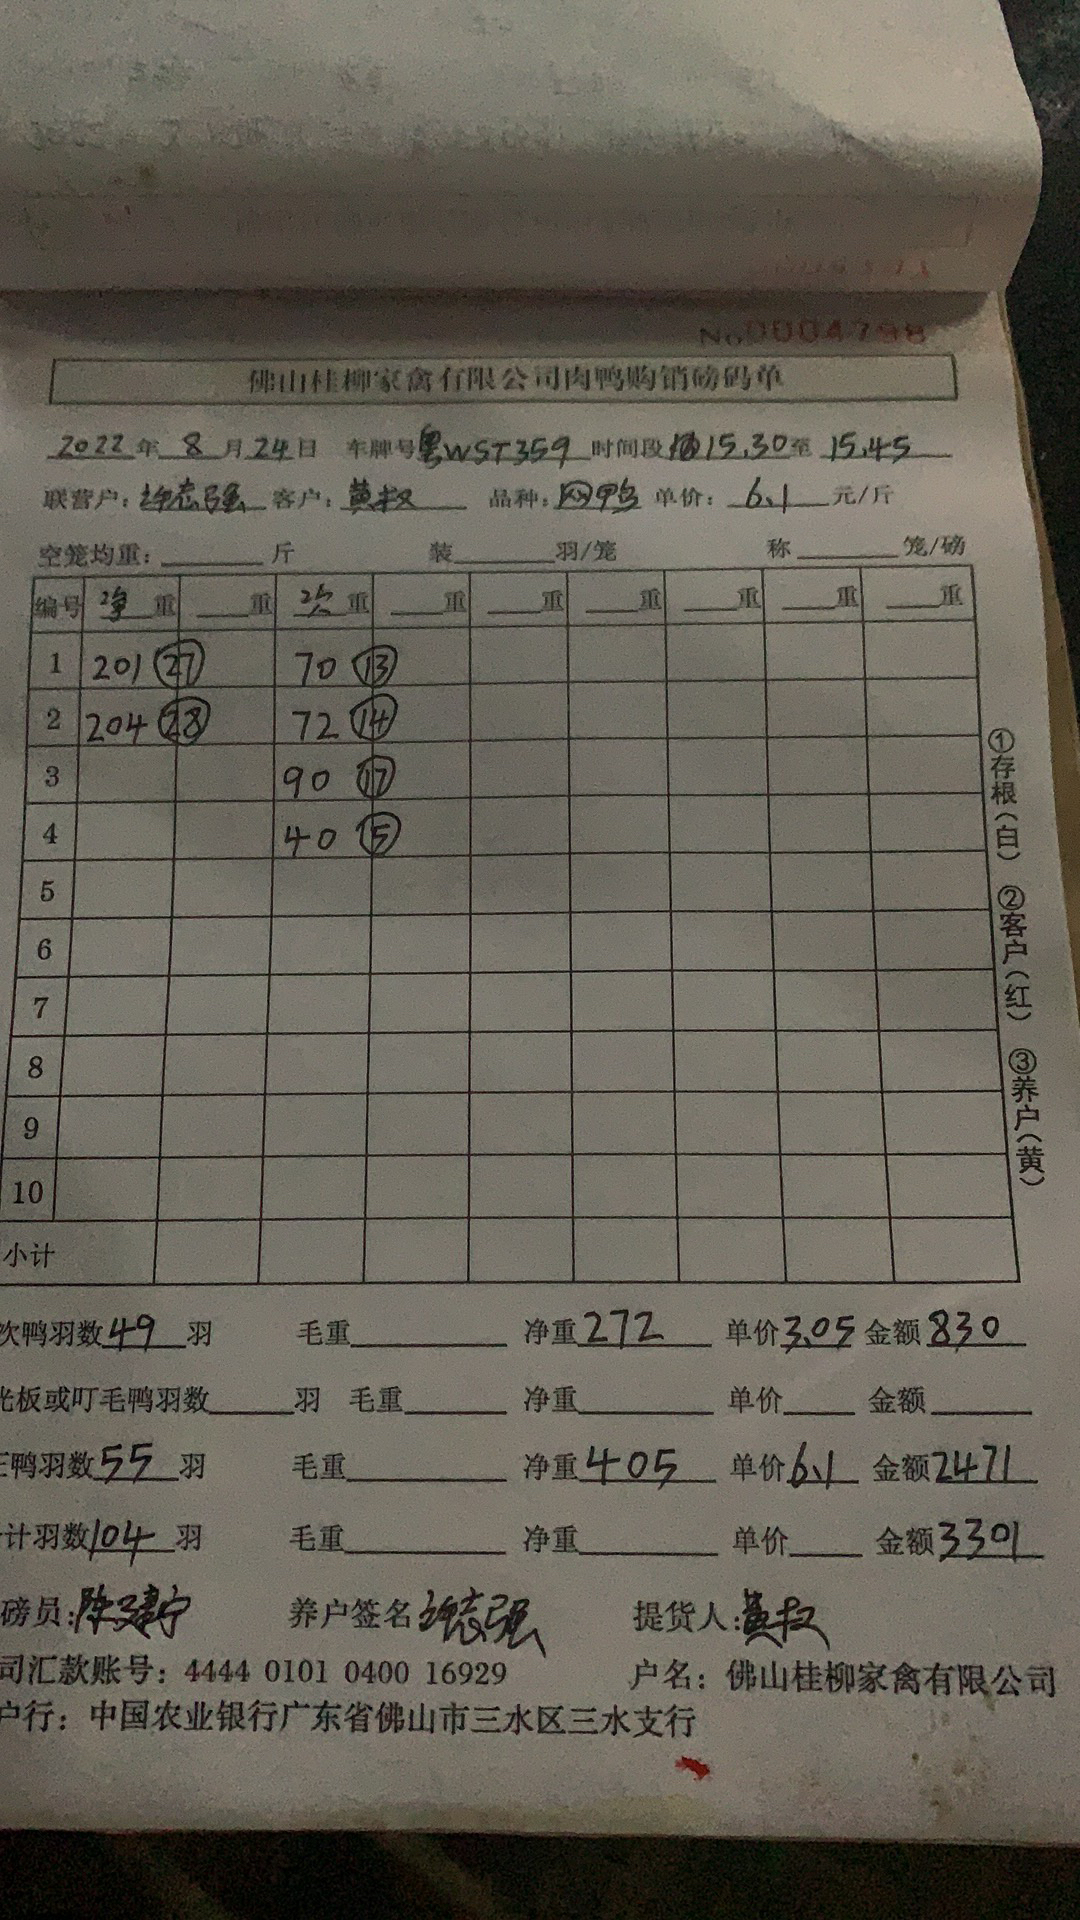 No0004798
佛山桂柳家禽有限公司肉鸭购销磅码单
2022年 8月24日 车牌号粤WST359 时间段 15.30至 15.45
联营户: 志强 客户: 黄叔 品种: 网鸭 单价: 6.1 元/斤
空笼均重: 斤 装 羽/笼 称 笼/磅
编号 净重 重 次重 重 重 重 重 重 重
1 201 27 70 13
2 204 28 72 14
3 90 17
4 40 5
5
6
7
8
9
10
小计
①存根(白) ②客户(红) ③养户(黄)
次鸭羽数49 羽 毛重 净重272 单价3.05 金额830
光板或叮毛鸭羽数 羽 毛重 净重 单价 金额
正鸭羽数55 羽 毛重 净重405 单价6.1 金额2471
计羽数104 羽 毛重 净重 单价 金额3301
磅员: 陈 宁 养户签名 志强 提货人: 黄叔
司汇款账号: 4444 0101 0400 16929 户名: 佛山桂柳家禽有限公司
户行: 中国农业银行广东省佛山市三水区三水支行